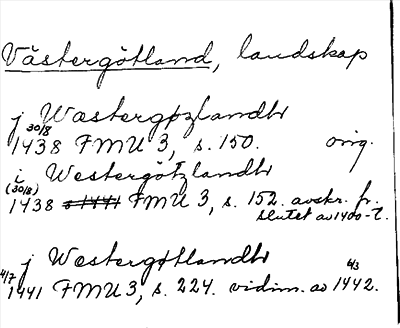 Västergötland, landskap
j Wæstergøzlandh
30/8
1438 FMU 3, s. 150. orig.
i Westergötzlandh
(30/8)
1438 FMU 3, s. 152. avskr. fr.
slutet av 1400-t.
j Westergøtlandh
4/7 6/3
1441 FMU 3, s. 224. vidim. av 1442.